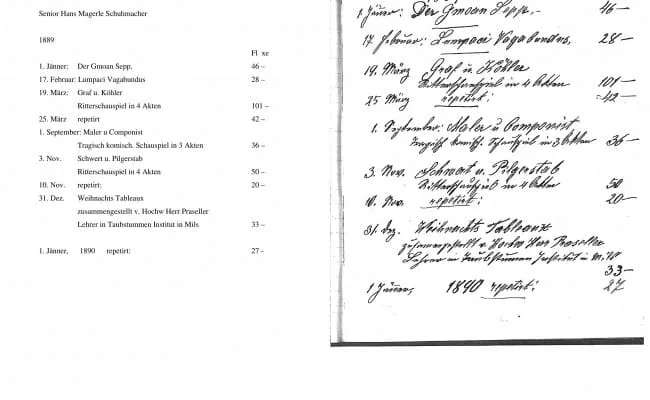 Senior Hans Magerle Schuhmacher
1889
Fl xe
1. Jänner: Der Gmoan Sepp, 46 –
17. Februar: Lumpaci Vagabundus 28 –
19. März: Graf u. Köhler
Ritterschauspiel in 4 Akten 101 –
25. März repetirt 42 –
1. September: Maler u Componist
Tragisch komisch. Schauspiel in 3 Akten 36 –
3. Nov. Schwert u. Pilgerstab
Ritterschauspiel in 4 Akten 50 –
10. Nov. repetirt: 20 –
31. Dez. Weihnachts Tableaux
zusammengestellt v. Hochw Herr Praseller
Lehrer in Taubstummen Institut in Mils 33 –
1. Jänner, 1890 repetirt: 27 –
1. Jänner: Der Gmoan Sepp. 46 –
17 Februar: Lumpaci Vagabundus, 28 –
19. März Graf u. Köhler
Ritterschauspiel in 4 Akten 101 –
25 März repetirt: 42 –
1. September: Maler u Componist
Tragisch komisch. Schauspiel in 3 Akten 36 –
3. Nov. Schwert u. Pilgerstab
Ritterschauspiel in 4 Akten 50
10. Nov. repetirt: 20 –
31. Dez. Weihnachts Tableaux
zusammengestellt v Hochw Herr Praseller
Lehrer in Taubstummen Institut in Mils
33 –
1 Jänner, 1890 repetirt: 27